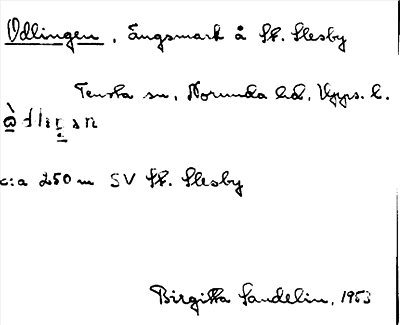 Odlingen, Ängsmark å St. Slesby
Tensta sn, Norunda hd, Upps. l.
c:a 250 m SV St. Slesby
Birgitta Sandelin, 1953